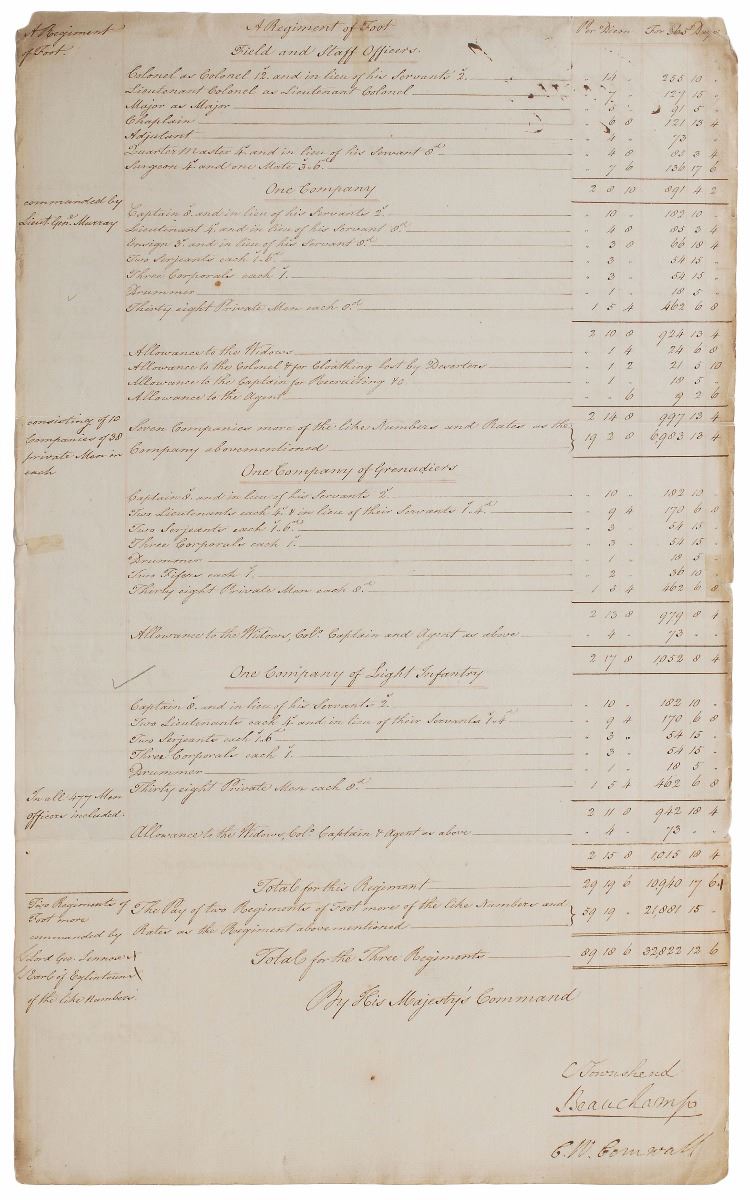 A Regiment of Foot Per Diem For 365 Days
A Regiment
of Foot.
Field and Staff Officers.
Colonel as Colonel 12s. and in lieu of his Servants 2s. " 14 " 255 10 "
Lieutenant Colonel as Lieutenant Colonel " 7 " 127 15 "
Major as Major " 5 " 91 5 "
Chaplain " 6 8 121 13 4
Adjutant " 4 " 73 " "
Quarter Master 4s. and in lieu of his Servant 8d. " 4 8 85 3 4
Surgeon 4s. and one Mate 3s.6d. " 7 6 136 17 6
2 8 10 891 4 2
One Company
commanded by
Lieut. Genl. Murray
Captain 8s. and in lieu of his Servants 2s. " 10 " 182 10 "
Lieutenant 4s. and in lieu of his Servant 8d. " 4 8 85 3 4
Ensign 3s. and in lieu of his Servant 8d. " 3 8 66 18 4
Two Serjeants each 1s.6d. " 3 " 54 15 "
Three Corporals each 1s. " 3 " 54 15 "
Drummer " 1 " 18 5 "
Thirty eight Private Men each 8d. 1 5 4 462 6 8
2 10 8 924 13 4
Allowance to the Widows " 1 4 24 6 8
Allowance to the Colonel & for Cloathing lost by Deserters " 1 2 21 5 10
Allowance to the Captain for Recruiting &c. " 1 " 18 5 "
Allowance to the Agent " " 6 9 2 6
2 14 8 997 13 4
consisting of 10
Companies of 38
private Men in
each
Seven Companies more of the like Numbers and Rates as the
Company abovementioned } 19 2 8 6983 13 4
One Company of Grenadiers
Captain 8s. and in lieu of his Servants 2s. " 10 " 182 10 "
Two Lieutenants each 4s. & in lieu of their Servants 1s.4d. " 9 4 170 6 8
Two Serjeants each 1s.6d. " 3 " 54 15 "
Three Corporals each 1s. " 3 " 54 15 "
Drummer " 1 " 18 5 "
Two Fifers each 1s. " 2 " 36 10 "
Thirty eight Private Men each 8d. 1 5 4 462 6 8
2 13 8 979 8 4
Allowance to the Widows, Colo. Captain and Agent as above " 4 " 73 " "
2 17 8 1052 8 4
One Company of Light Infantry
Captain 8s. and in lieu of his Servants 2s. " 10 " 182 10 "
Two Lieutenants each 4s. and in lieu of their Servants 1s.4d. " 9 4 170 6 8
Two Serjeants each 1s.6d. " 3 " 54 15 "
Three Corporals each 1s. " 3 " 54 15 "
Drummer " 1 " 18 5 "
Thirty eight Private Men each 8d. 1 5 4 462 6 8
In all 477 Men
officers included.
2 11 8 942 18 4
Allowance to the Widows, Colo. Captain & Agent as above " 4 " 73 " "
2 15 8 1015 18 4
Total for this Regiment 29 19 6 10940 17 6
Two Regiments of
Foot more
commanded by
Lord Geo. Lennox
Earl of Eglintoun
of the like Numbers.
The Pay of two Regiments of Foot more of the like Numbers and
Rates as the Regiment abovementioned } 59 19 " 21,881 15 "
Total for the Three Regiments 89 18 6 32822 12 6
By His Majesty's Command
C Townshend
Beauchamp
C. W. Cornwall